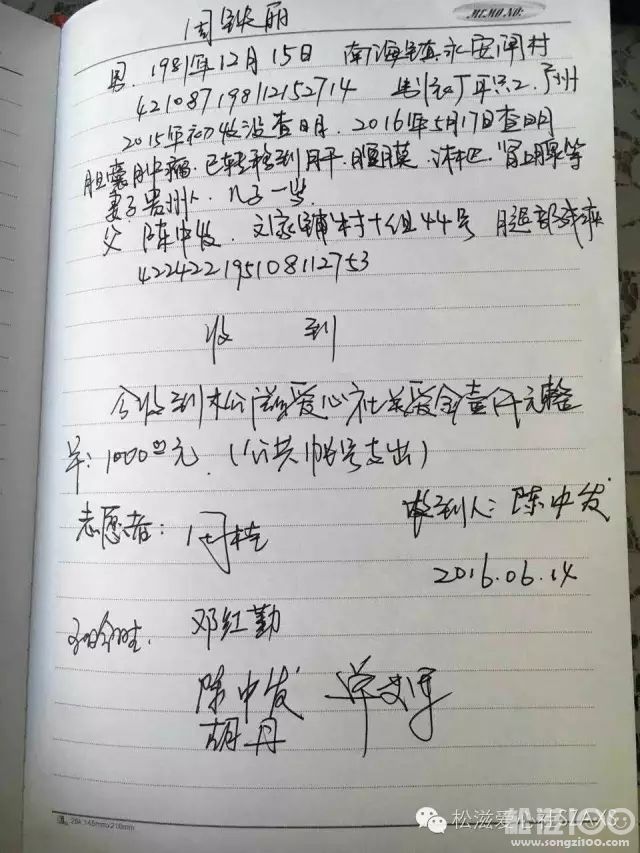 MEMO NO:
周铁丽
男. 1981年12月15日 南海镇永安闸村
421087198112152714 广州
2015年初收没查明. 2016年5月17日查明
胆囊肿瘤. 已转移到肝. 腹膜. 淋巴. 肾上腺等
妻子贵州人. 儿子一岁.
父 陈中发. 刘家铺村十组44号 腿部残疾
422422195108112753
收 到
今收到松滋爱心社关爱金壹仟元整
¥: 1000.00元. (公共帐号支出)
志愿者: 周桂
收到人: 陈中发
2016.06.14
邓红勤
陈中发
胡丹
25K 145mm×210mm
松滋爱心社SZAXS
松滋100
www.songzi100.com